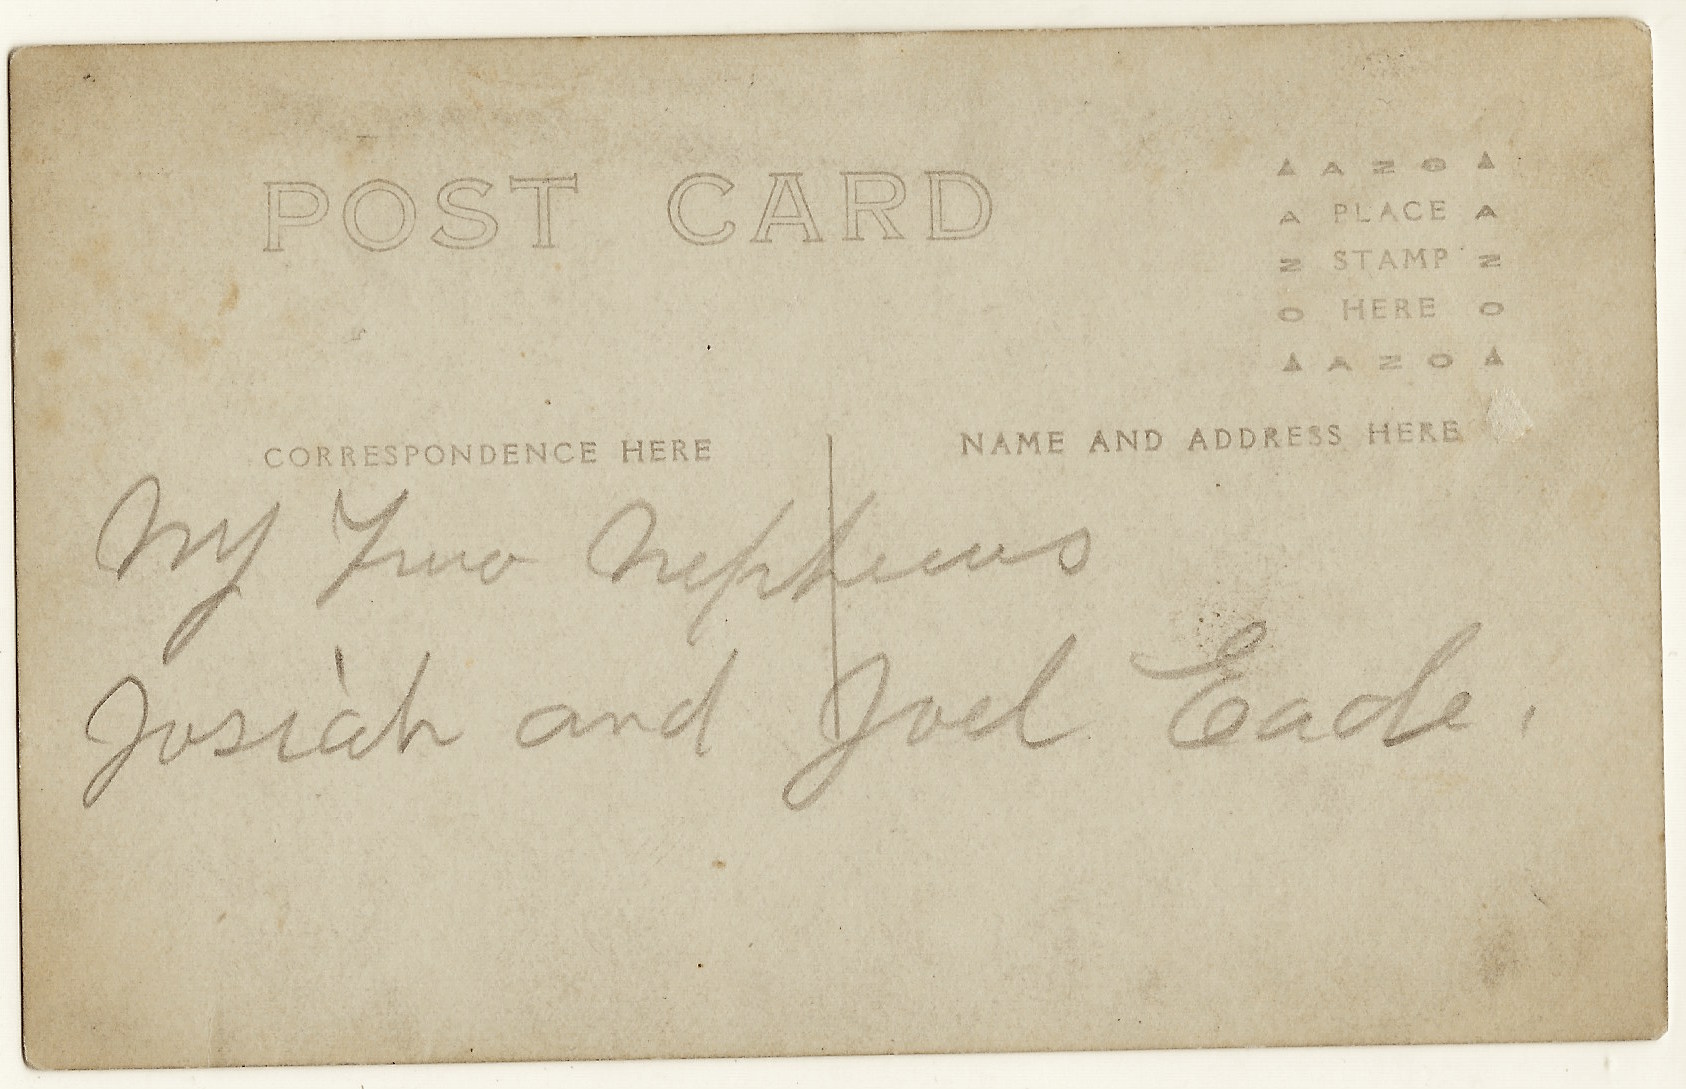 POST CARD
▲ A Z O ▲
A PLACE A
Z STAMP Z
O HERE O
▲ A Z O ▲
CORRESPONDENCE HERE
NAME AND ADDRESS HERE
My Two Nephews
Josiah and Joel Eade.